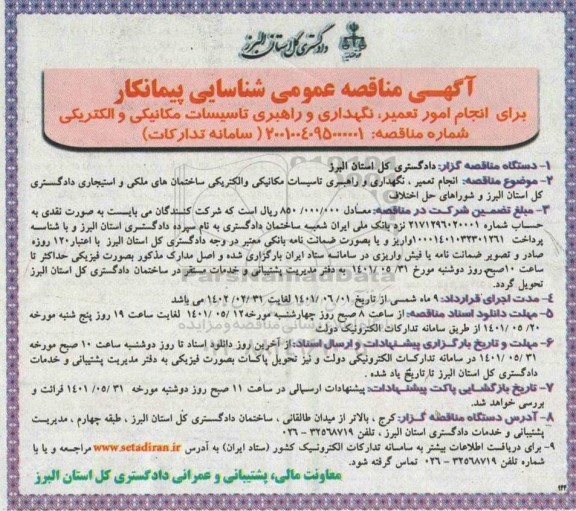 دادگستری کل استان البرز
آگهی مناقصه عمومی شناسایی پیمانکار
برای انجام امور تعمیر، نگهداری و راهبری تاسیسات مکانیکی و الکتریکی
شماره مناقصه: ۲۰۰۱۰۰۴۰۹۵۰۰۰۰۰۱ ( سامانه تدارکات)
۱- دستگاه مناقصه گزار: دادگستری کل استان البرز
۲- موضوع مناقصه: انجام تعمیر ، نگهداری و راهبری تاسیسات مکانیکی والکتریکی ساختمان های ملکی و استیجاری دادگستری
کل استان البرز و شوراهای حل اختلاف
۳- مبلغ تضمین شرکت در مناقصه: معادل ۸۵۰/۰۰۰/۰۰۰ ریال است که شرکت کنندگان می بایست به صورت نقدی به
حساب شماره ۲۱۷۱۲۹۶۰۲۰۰۰۱ نزد بانک ملی ایران شعبه ساختمان دادگستری به نام سپرده دادگستری استان البرز و با شناسه
پرداخت واریز و یا بصورت ضمانت نامه بانکی معتبر در وجه دادگستری کل استان البرز با اعتبار ۱۲۰ روزه
صادر و تصویر ضمانت نامه یا فیش واریزی در سامانه ستاد ایران بارگزاری شده و اصل مدارک مذکور بصورت فیزیکی حداکثر تا
ساعت ۱۰صبح،روز دوشنبه مورخ ۱۴۰۱/۰۵/۳۱ به دفتر مدیریت پشتیبانی و خدمات مستقر در ساختمان دادگستری کل استان البرز
تحویل گردد.
۴- مدت اجرای قرارداد: ۹ ماه شمسی از تاریخ ۱۴۰۱/۰۶/۰۱ لغایت ۱۴۰۲/۰۲/۳۱ می باشد
۵- مهلت دانلود اسناد مناقصه: از ساعت ۸ صبح روز چهارشنبه مورخه ۱۴۰۱/۰۵/۱۲ لغایت ساعت ۱۹ روز پنج شنبه مورخه
۱۴۰۱/۰۵/۲۰ از طریق سامانه تدارکات الکترونیک دولت
۶- مهلت و تاریخ بارگزاری پیشنهادات و ارسال اسناد: از آخرین روز دانلود اسناد تا روز دوشنبه ساعت ۱۰ صبح مورخه
۱۴۰۱/۰۵/۳۱ در سامانه تدارکات الکترونیکی دولت و نیز تحویل پاکات بصورت فیزیکی به دفتر مدیریت پشتیبانی و خدمات
دادگستری کل استان البرز تا تاریخ یاد شده .
۷- تاریخ بازگشایی پاکت پیشنهادات: پیشنهادات ارسالی در ساعت ۱۱ صبح روز دوشنبه مورخه ۱۴۰۱/۰۵/۳۱ قرائت و
بررسی خواهد شد.
۸- آدرس دستگاه مناقصه گزار: کرج ، بالاتر از میدان طالقانی ، ساختمان دادگستری کل استان البرز ، طبقه چهارم ، مدیریت
پشتیبانی و خدمات دادگستری استان البرز ، تلفن ۳۲۵۶۸۷۱۹ - ۰۲۶
۹- برای دریافت اطلاعات بیشتر به سامانه تدارکات الکترونیک کشور (ستاد ایران) به آدرس www.setadiran.ir مراجعه و یا با
شماره تلفن ۳۲۵۶۸۷۱۹ - ۰۲۶ تماس گرفته شود.
معاونت مالی، پشتیبانی و عمرانی دادگستری کل استان البرز
ParsNamadData